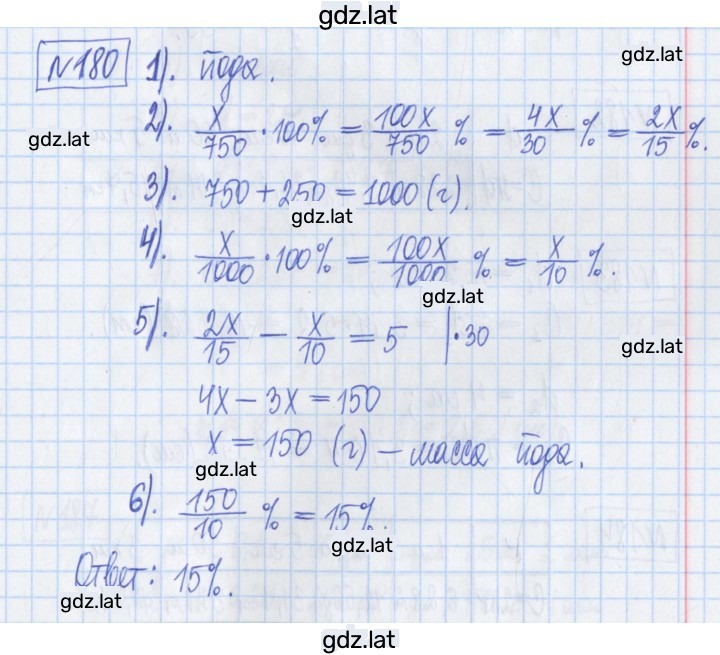 gdz.lat
№180 1). йода.
gdz.lat
2). x/750 · 100% = 100x/750 % = 4x/30 % = 2x/15 %.
gdz.lat
3). 750 + 250 = 1000 (г).
gdz.lat
4). x/1000 · 100% = 100x/1000 % = x/10 %.
gdz.lat
5). 2x/15 − x/10 = 5 | · 30
gdz.lat
4x − 3x = 150
x = 150 (г) − масса йода.
gdz.lat
6). 150/10 % = 15%.
gdz.lat
Ответ: 15%.
gdz.lat
gdz.lat